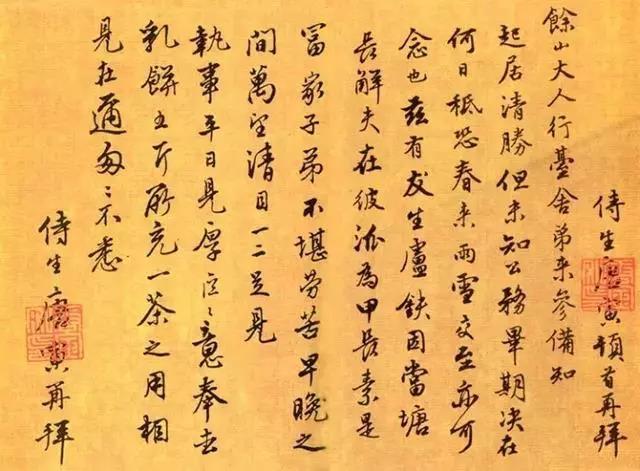 侍生唐寅頓首再拜
餘山大人行臺舍弟来參備知
起居清勝但未知公務畢期決在
何日秪恐春来雨雪交至亦可
念也茲有友生盧鈇因當塘
長解夫在彼泒為甲長素是
富家子弟不堪勞苦早晚之
間萬望清目一二足見
執事平日見厚區〻意奉去
乳餅五斤所充一茶之用相
見在邇匆〻不悉
侍生唐寅再拜